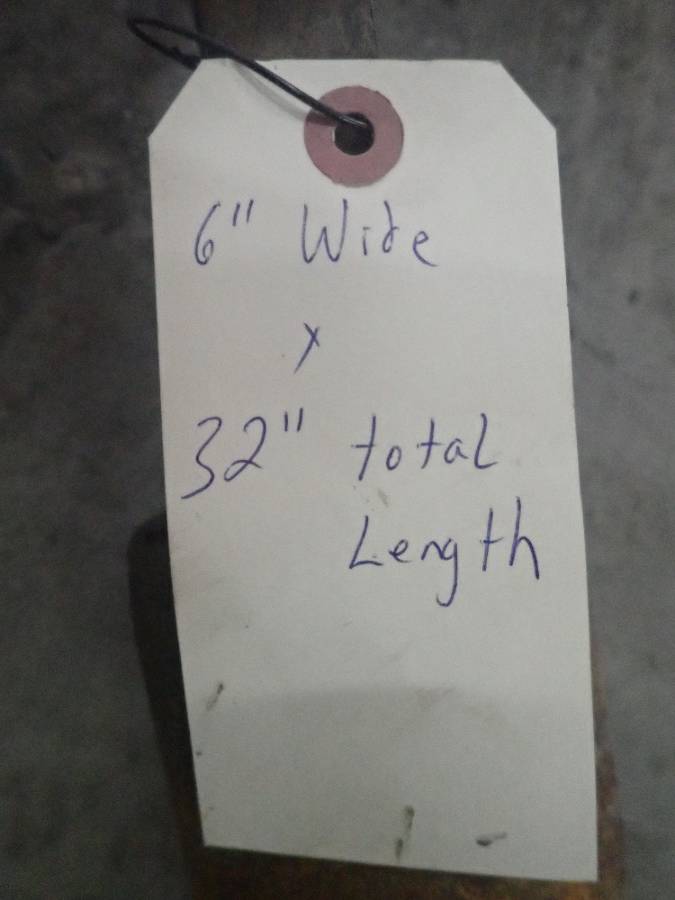 6" Wide
x
32" total
Length